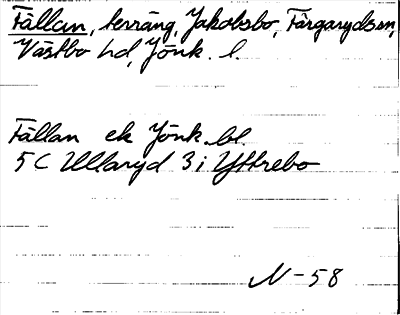 Fällan, terräng, Jakobsbo, Färgaryds sn,
Västbo hd, Jönk. l.
Fällan ek Jönk. bl.
5 C Ullaryd 3 i Yttrebo
N-58